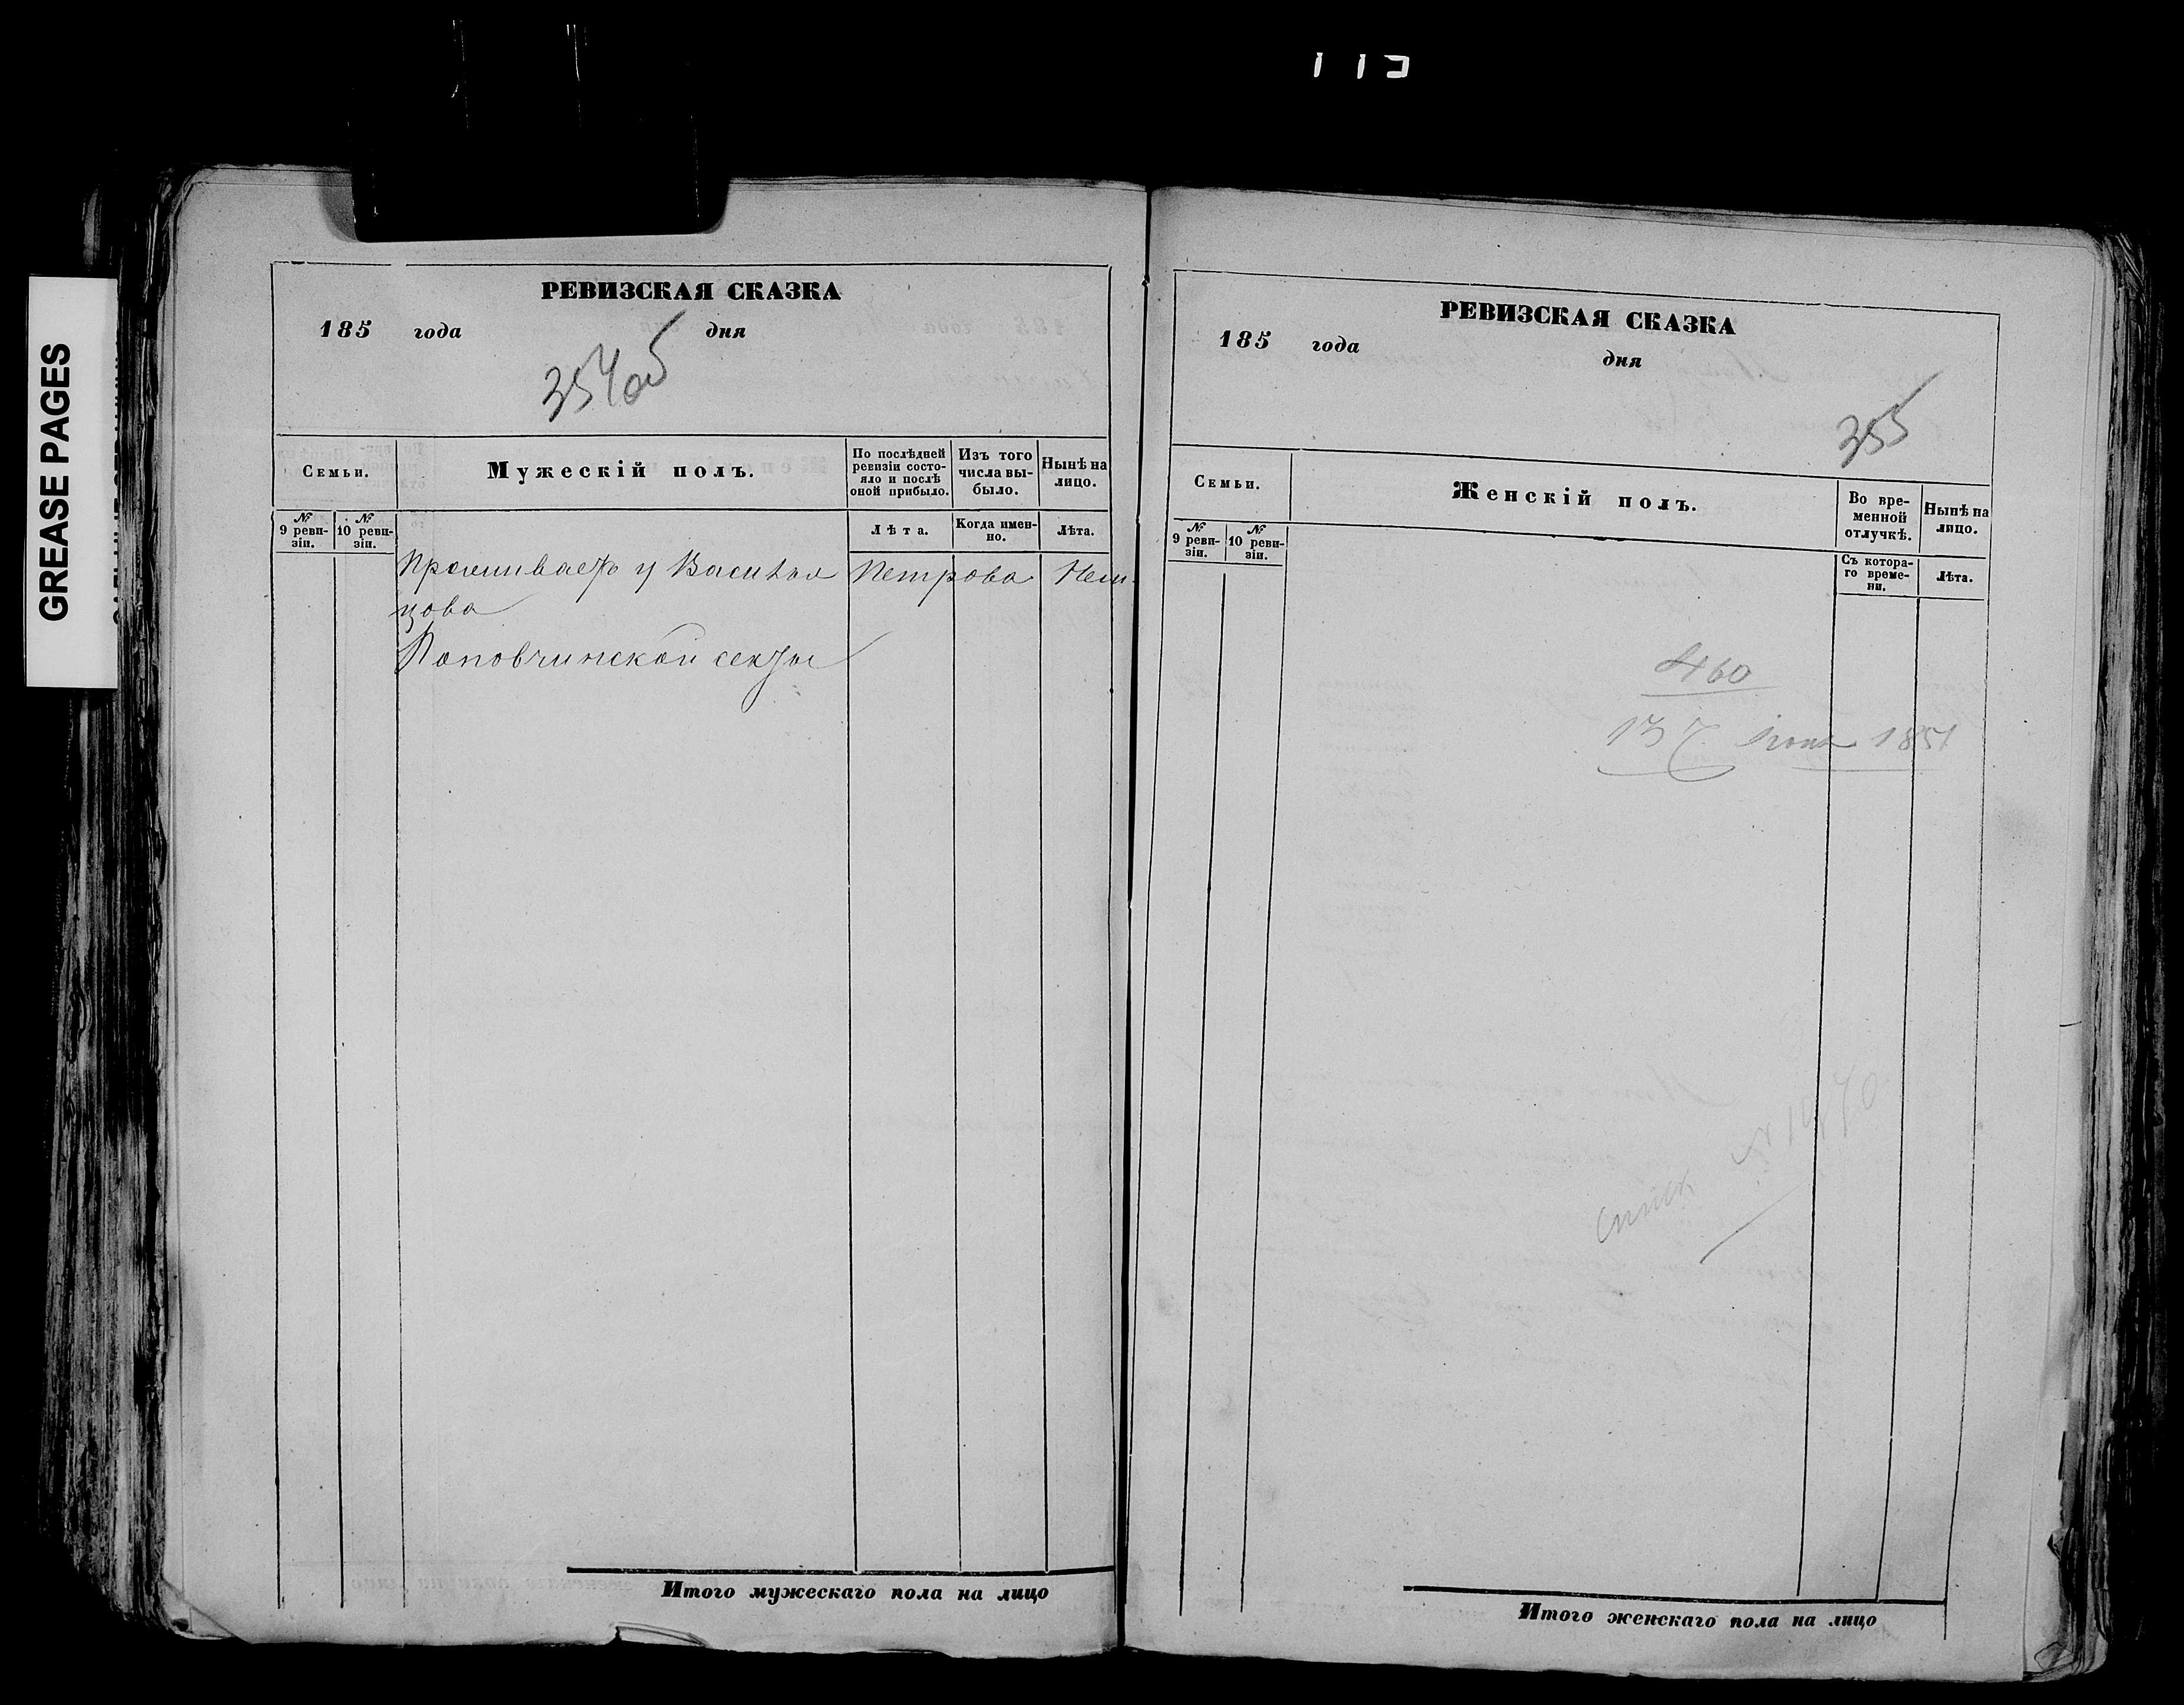 113
GREASE PAGES
РЕВИЗСКАЯ СКАЗКА
185 года дня
354об
Семьи.
Мужескій полъ.
По послѣдней ревизіи состо-
яло и послѣ
оной прибыло.
Изъ того
числа вы-
было.
Нынѣ на
лицо.
№
9 реви-
зіи.
№
10 реви-
зіи.
Лѣта.
Когда имен-
но.
Лѣта.
Проживаетъ у Василья Петрова Нем-
цова
Поповчинской секты
Итого мужескаго пола на лицо
РЕВИЗСКАЯ СКАЗКА
185 года дня
355
Семьи.
Женскій полъ.
Во вре-
менной
отлучкѣ.
Нынѣ на
лицо.
№
9 реви-
зіи.
№
10 реви-
зіи.
Съ котора-
го време-
ни.
Лѣта.
460
137 1851
Итого женскаго пола на лицо